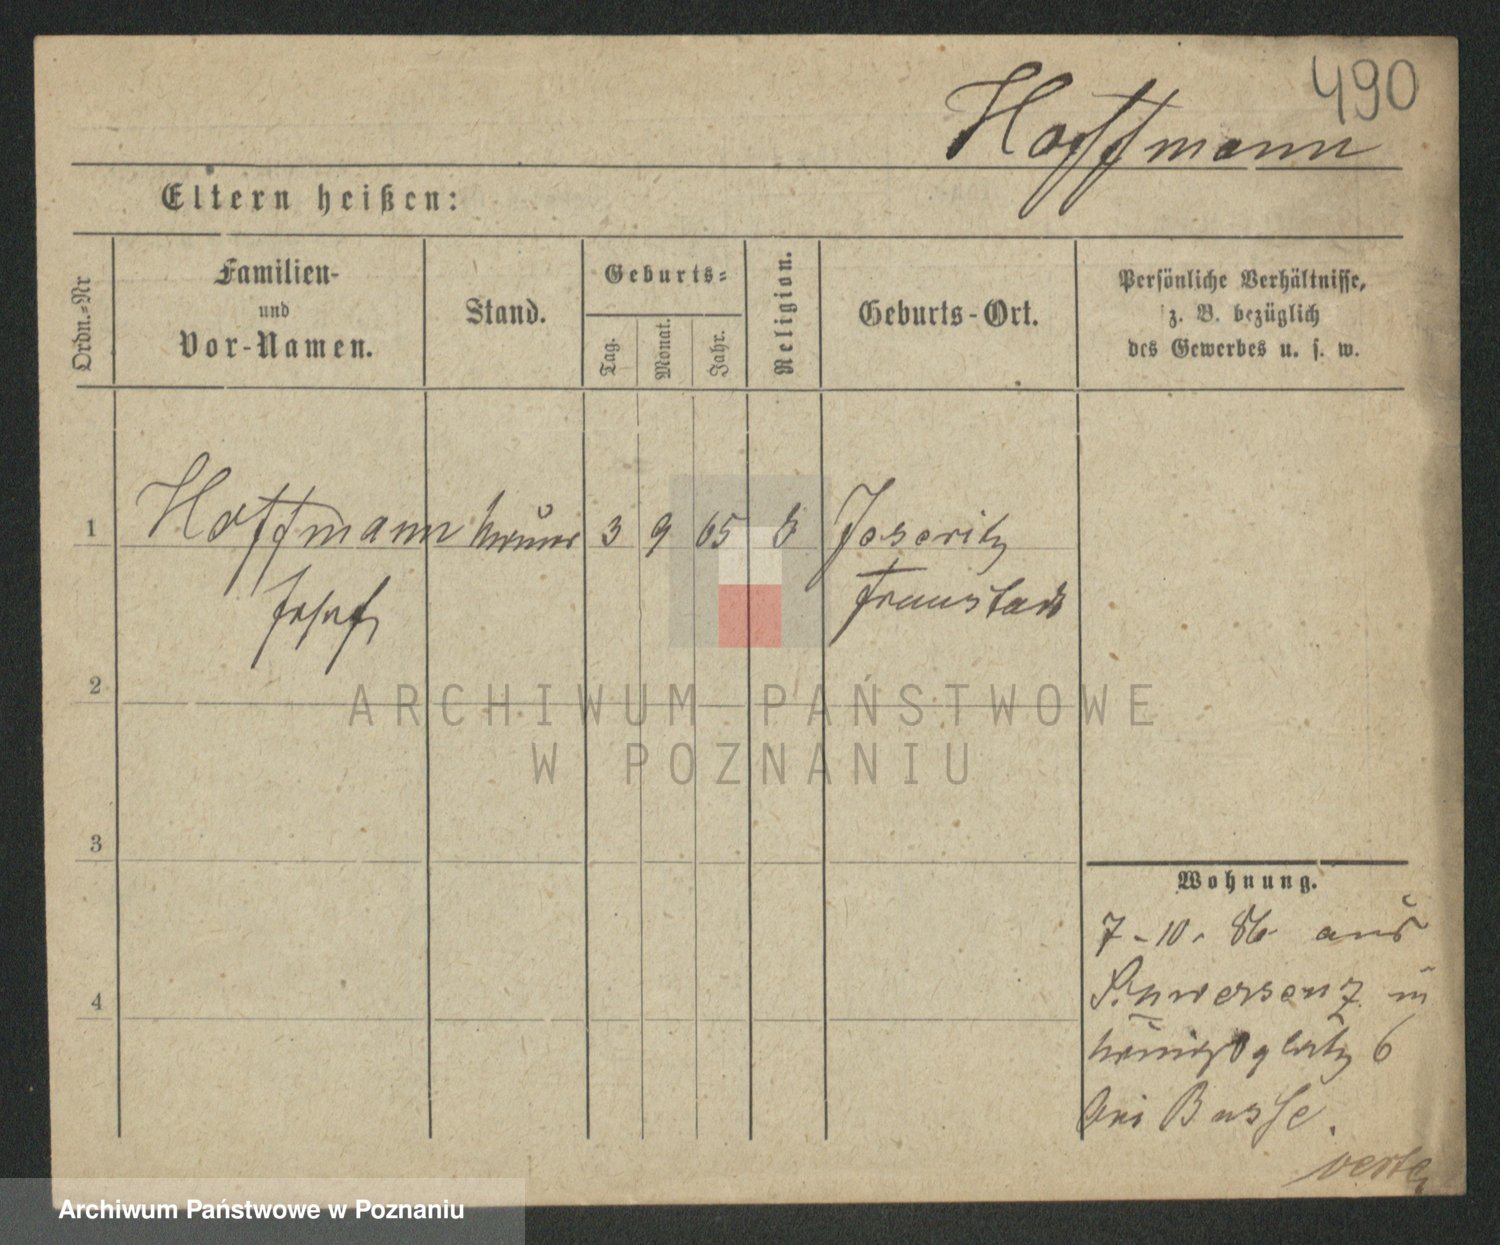 490
Hoffmann
Eltern heißen:
Ordn.-Nr
Familien-
und
Vor-Namen.
Stand.
Geburts-
Tag.
Monat.
Jahr.
Religion.
Geburts-Ort.
Persönliche Verhältnisse,
z. B. bezüglich
des Gewerbes u. s. w.
1 Hoffmann 3 9 65 Joseritz
Josef Fraustadt
2
3
4
ARCHIWUM PAŃSTWOWE
W POZNANIU
Wohnung.
7-10. 86 aus
in
Königsplatz 6
bei Busse.
verte
Archiwum Państwowe w Poznaniu